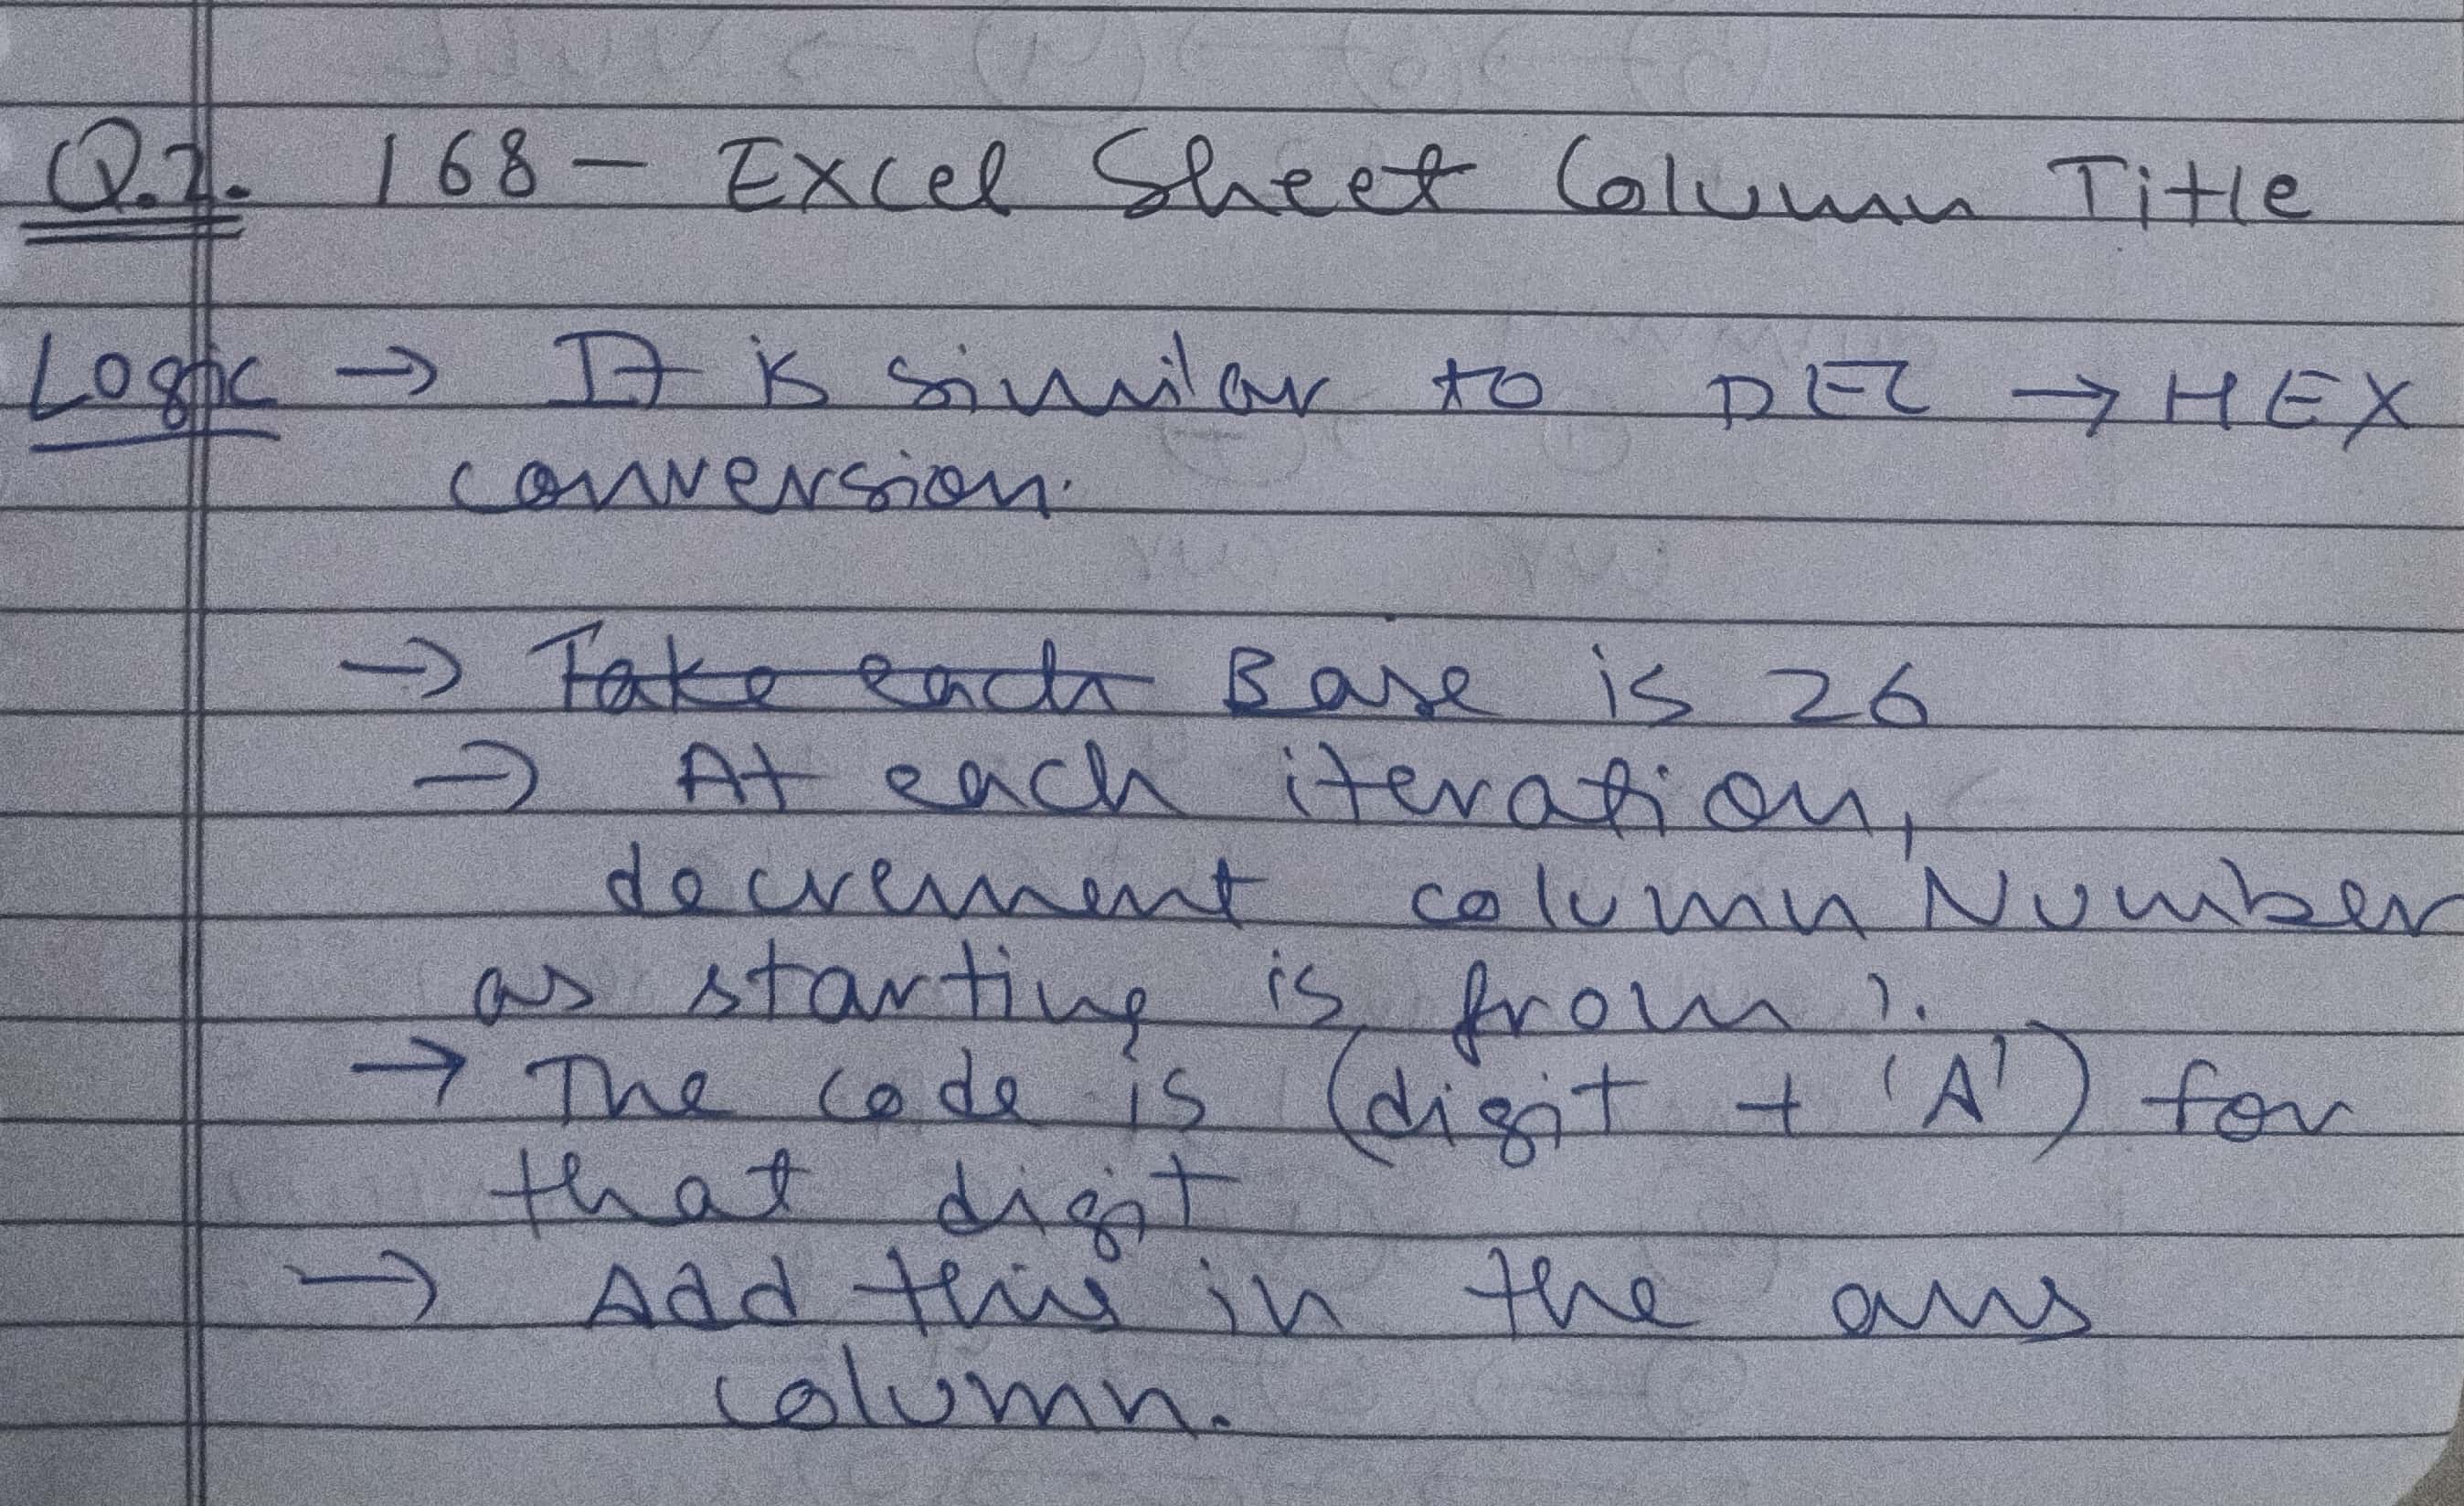 Q.2. 168 - Excel Sheet Column Title
Logic → It is similar to DEC → HEX
conversion.
→ Take each Base is 26
→ At each iteration,
decrement columnNumber
as starting is from 1.
→ The code is (digit + 'A') for
that digit
→ Add this in the ans
column.